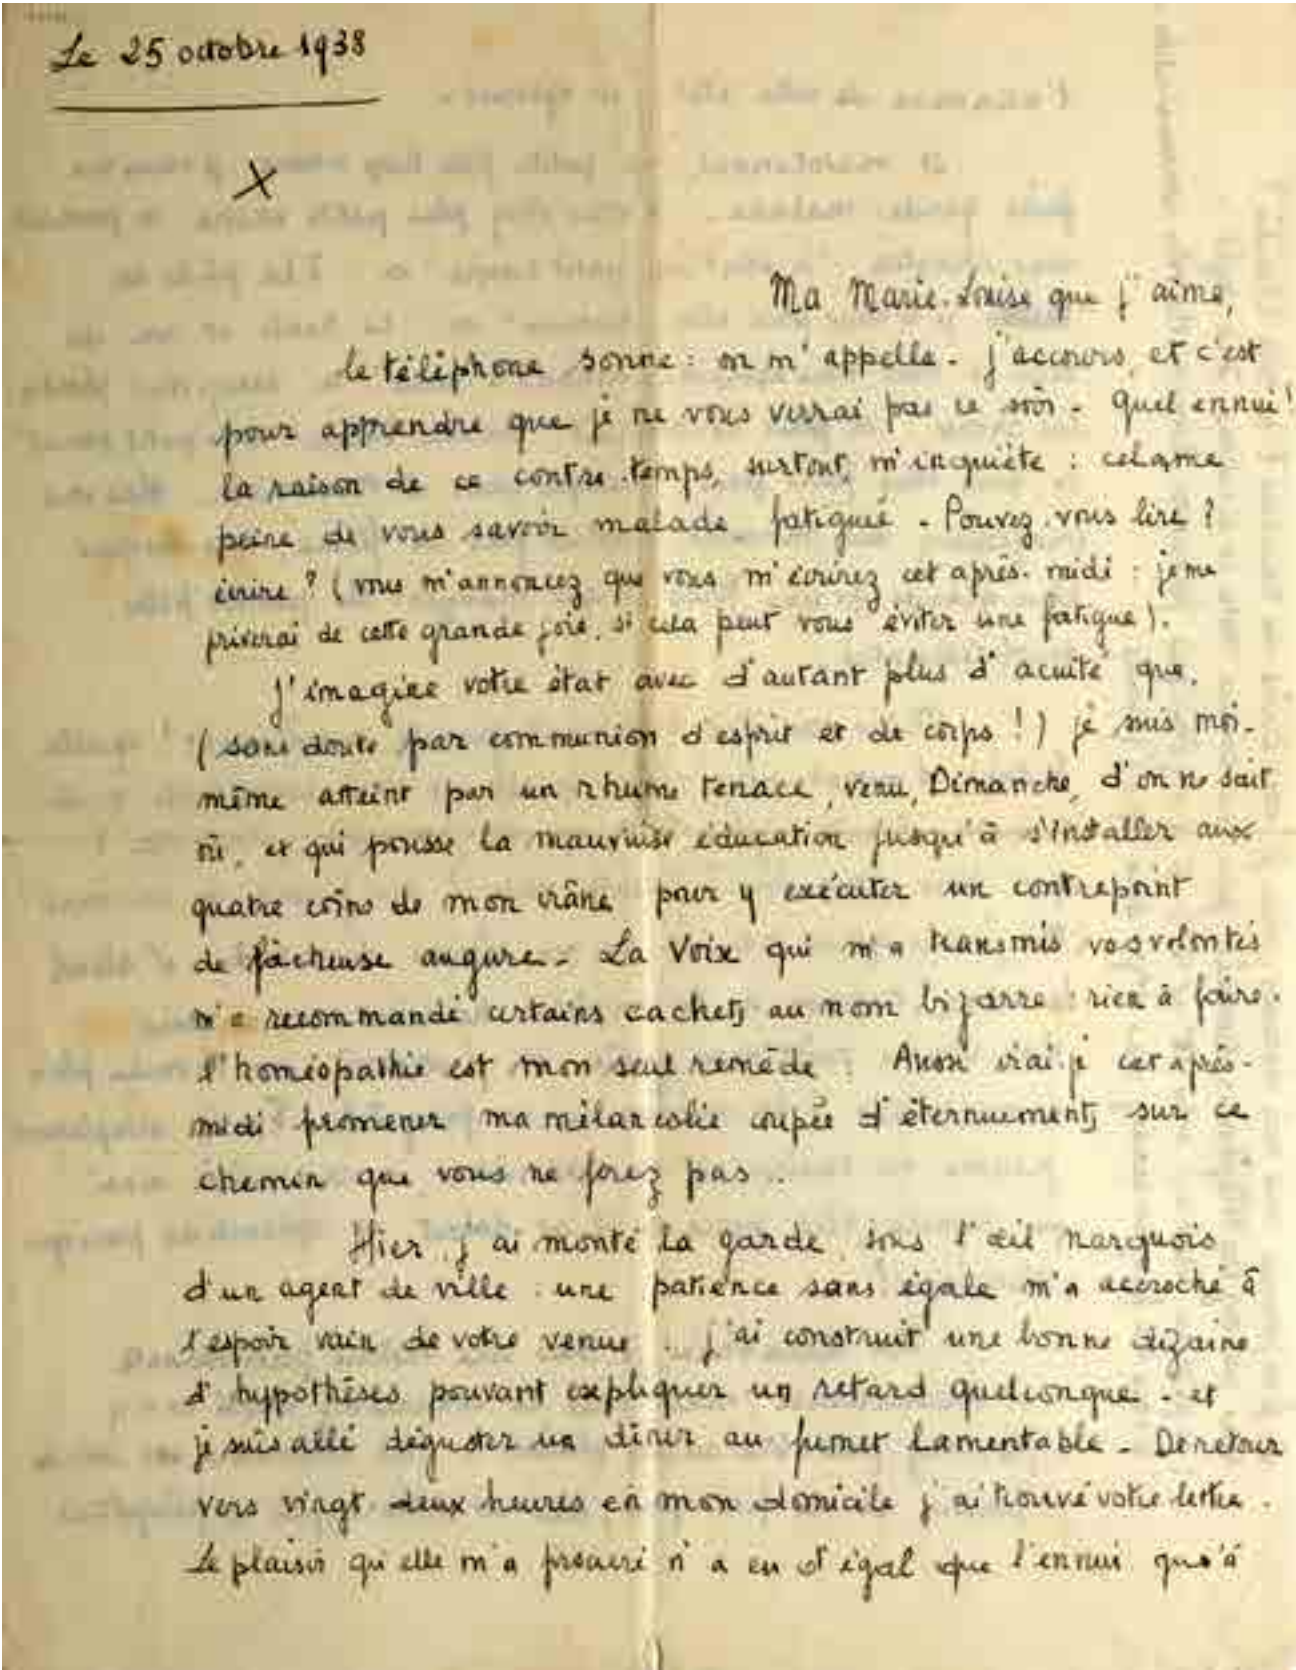 Le 25 octobre 1938
X
Ma Marie-Louise que j'aime,
le téléphone sonne : on m'appelle - j'accours, et c'est
pour apprendre que je ne vous verrai pas ce soir - quel ennui !
la raison de ce contre-temps, surtout, m'inquiète : cela me
peine de vous savoir malade, fatiguée - Pouvez-vous lire ?
écrire ? (vous m'annoncez que vous m'écrirez cet après-midi : je me
priverai de cette grande joie, si cela peut vous éviter une fatigue).
J'imagine votre état avec d'autant plus d'acuité que,
(sans doute par communion d'esprit et de corps !) je suis moi-
même atteint par un rhume tenace, venu, Dimanche, d'on ne sait
où, et qui pousse la mauvaise éducation jusqu'à s'installer aux
quatre coins de mon crâne pour y exécuter un contrepoint
de fâcheuse augure - La Voix qui m'a transmis vos volontés
m'a recommandé certains cachets au nom bizarre : rien à faire.
l'homéopathie est mon seul remède. Aussi irai-je cet après-
midi promener ma mélancolie coupée d'éternuements sur ce
chemin que vous ne ferez pas..
Hier, j'ai monté la garde, sous l'œil narquois
d'un agent de ville : une patience sans égale m'a accroché à
l'espoir vain de votre venue. j'ai construit une bonne dizaine
d'hypothèses pouvant expliquer un retard quelconque - et
je suis allé déguster un dîner au fumet lamentable - De retour
vers vingt-deux heures en mon domicile j'ai trouvé votre lettre.
Le plaisir qu'elle m'a procuré n'a eu d'égal que l'ennui qu'à